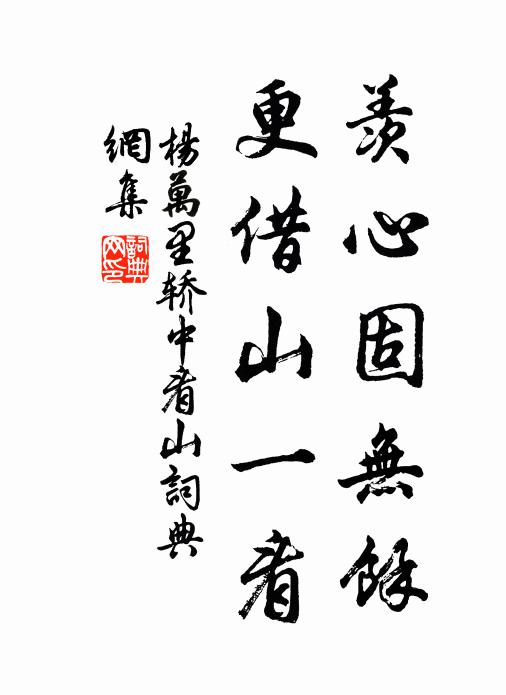 羨心固無餘
更借山一看
楊萬里轿中看山詞典
網集
詞典
网印